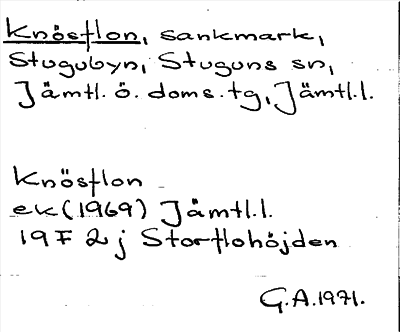 Knösflon, sankmark,
Stugubyn, Stuguns sn,
Jämtl. ö. doms.tg, Jämtl.l.
Knösflon
ek (1969) Jämtl.l.
19 F 2 j Storflohöjden
G.A. 1971.